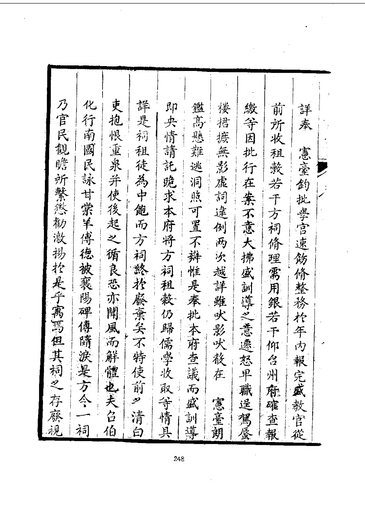 詳奉　憲臺鈞批學宮速飭修整務於年內報完盛教官從
前所收租穀若干方祠修理需用銀若干仰台州府確查報
繳等因批行在案不意大拂盛訓導之意遷怒卑職逞駕蜃
樓捃摭無影虛詞違例兩次越詳雖吠影吠聲在　憲臺朗
鑑高懸難逃洞照可置不辯惟是奉批本府查議而盛訓導
即央情請託詭求本府將方祠租穀仍歸儒學收取等情具
詳是祠租徒為中飽而方祠終於廢棄矣不特使前夕清白
吏抱恨重泉并使後起之循良恐亦聞風而解體也夫召伯
化行南國民詠甘棠羊傅德被襄陽碑傳隋淚是方今一祠
乃官民觀瞻所繫懲勸激揚於是乎寓焉但其祠之存廢視
248